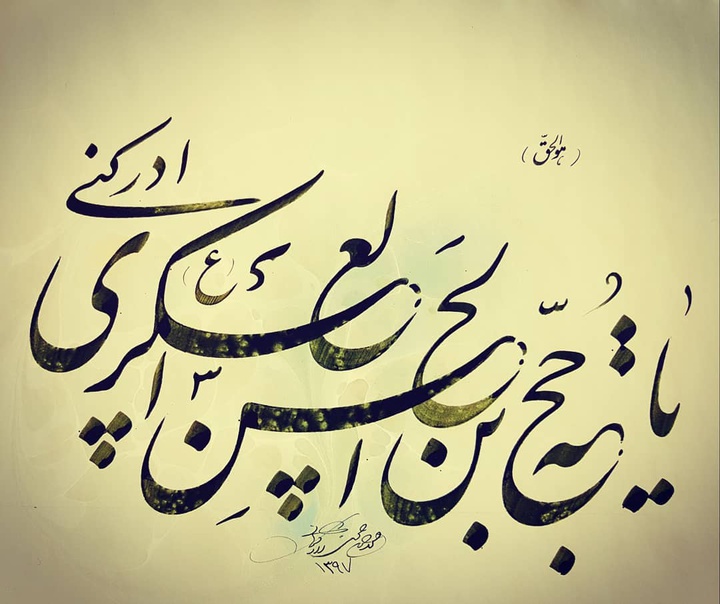 (هوالحقّ)
یا حجّة بن الحسن العسکری (ع) ادرکنی
۱۳۹۷